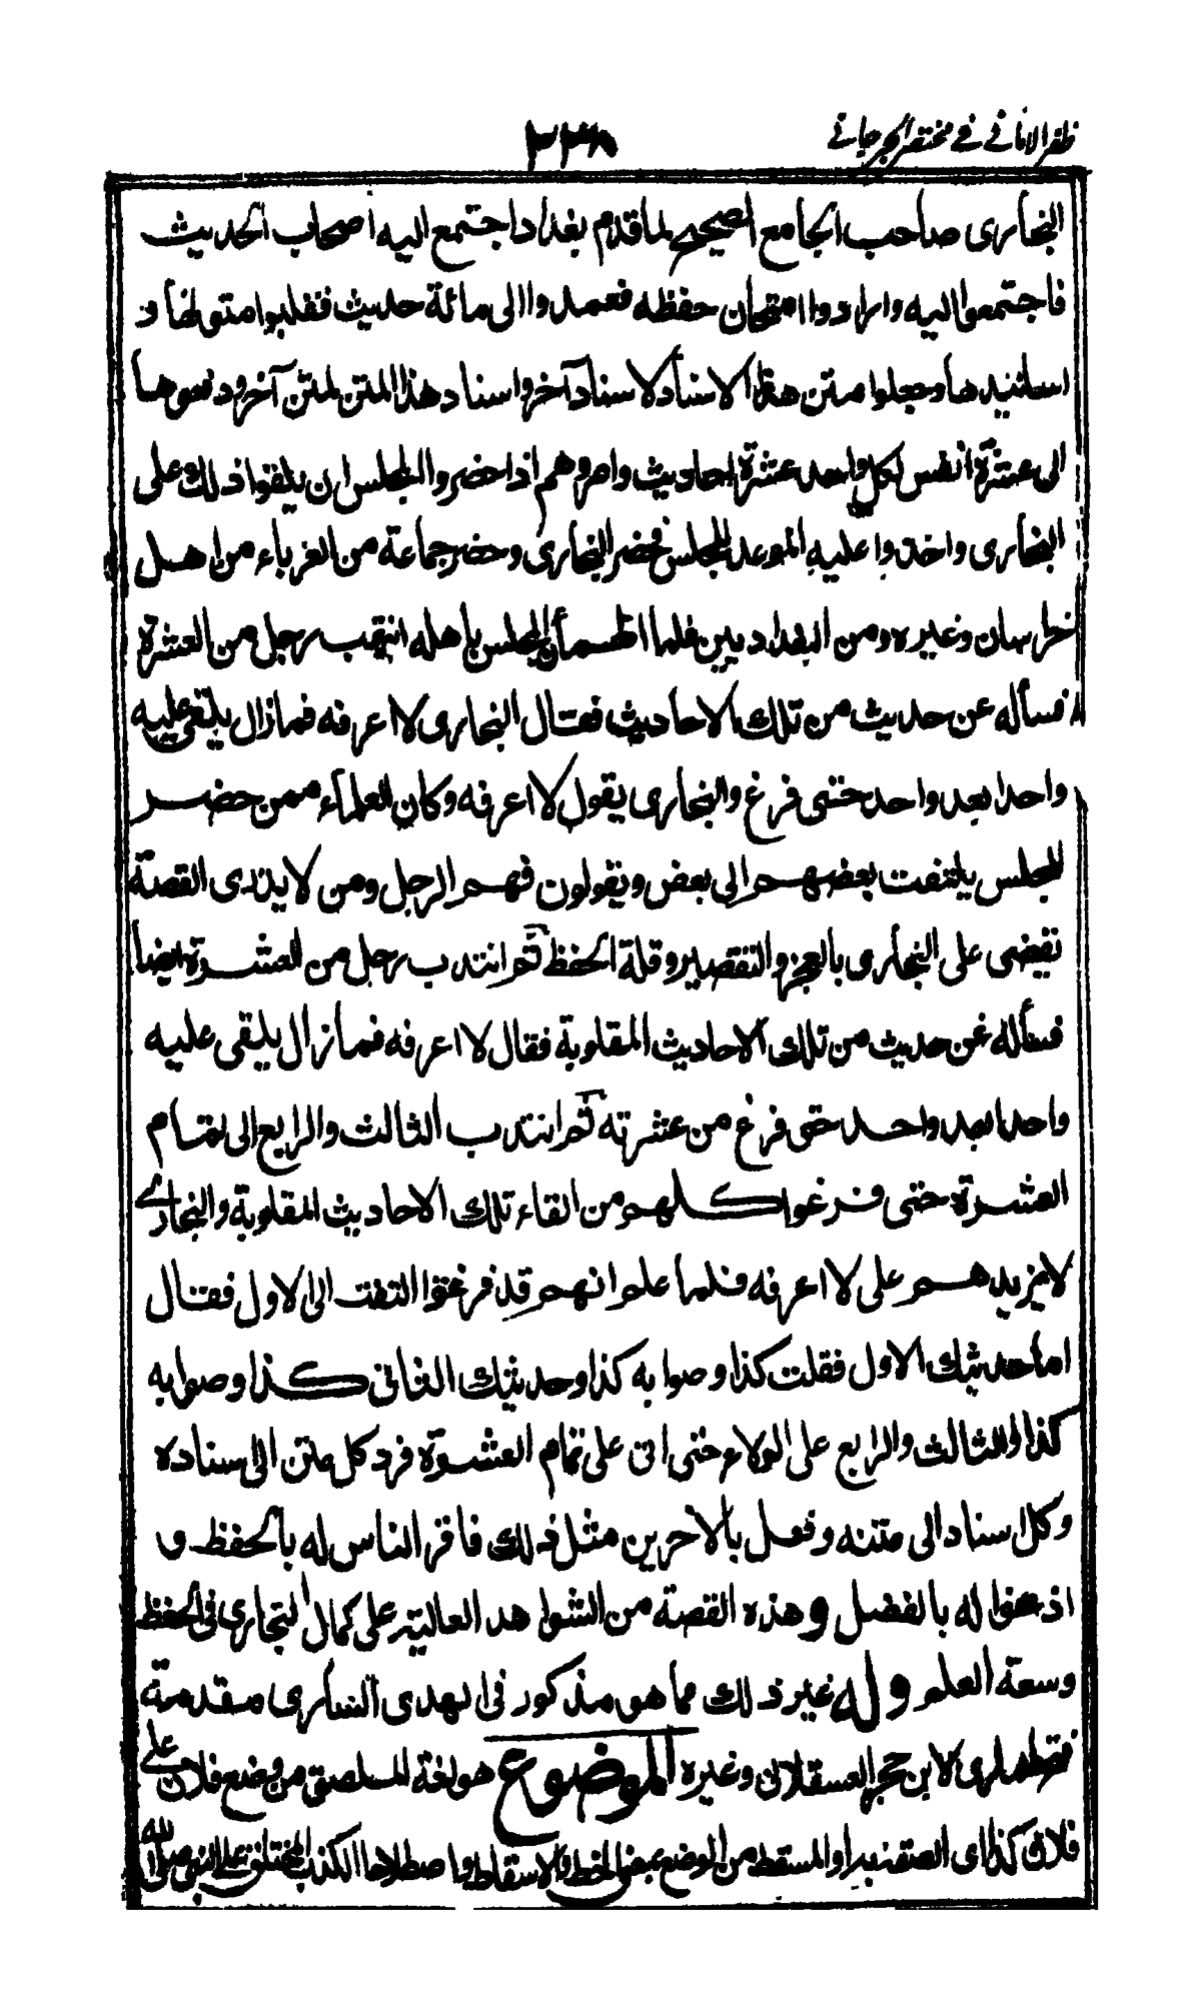 ظفر الامانی فی مختصر الجرجانی
٣٣٨
البخاری صاحب الجامع الصحیح لما قدم بغداد اجتمع الیه اصحاب الحدیث
فاجتمعوا الیه وارادوا امتحان حفظه فعمدوا الی مائة حدیث فقلبوا متونها و
اسانیدها وجعلوا متن هذا الاسناد لاسناد آخر واسناد هذا المتن لمتن آخر ودفعوها
الی عشرة انفس لکل واحد عشرة احادیث وامروهم اذا حضروا المجلس ان یلقوا ذلك علی
البخاری واخذوا علیه الموعد للمجلس فحضر البخاری وحضر جماعة من الغرباء من اهل
خراسان وغیره ومن البغدادیین فلما اطمأن المجلس باهله انتدب رجل من العشرة
فسأله عن حدیث من تلك الاحادیث فقال البخاری لا اعرفه فمازال یلقی علیه
واحدا بعد واحد حتی فرغ والبخاری یقول لا اعرفه وکان العلماء ممن حضر
المجلس یلتفت بعضهم الی بعض ویقولون فهم الرجل ومن لا یدری القصة
یقضی علی البخاری بالعجز والتقصیر وقلة الحفظ ثم انتدب رجل من العشرة ایضا
فسأله عن حدیث من تلك الاحادیث المقلوبة فقال لا اعرفه فمازال یلقی علیه
واحدا بعد واحد حتی فرغ من عشرته ثم انتدب الثالث والرابع الی تمام
العشرة حتی فرغوا کلهم من القاء تلك الاحادیث المقلوبة والبخاری
لا یزیدهم علی لا اعرفه فلما علم انهم قد فرغوا التفت الی الاول فقال
اما حدیثك الاول فقلت کذا وصوابه کذا وحدیثك الثانی کذا وصوابه
کذا والثالث والرابع علی الولاء حتی اتی علی تمام العشرة فرد کل متن الی اسناده
وکل اسناد الی متنه وفعل بالآخرین مثل ذلك فاقر الناس له بالحفظ و
اذعنوا له بالفضل وهذه القصة من الشواهد العالیة علی کمال البخاری فی الحفظ
وسعة العلم وله غیر ذلك مما هو مذکور فی الهدی الساری مقدمة
لابن حجر العسقلانی وغیره الموضوع هو لغة الملصق من وضع فلان علی
فلان کذا ای الصقه به او المسقط من الوضع بمعنی الحط والاسقاط واصطلاحا الکذب المختلق علی النبی صلی الله